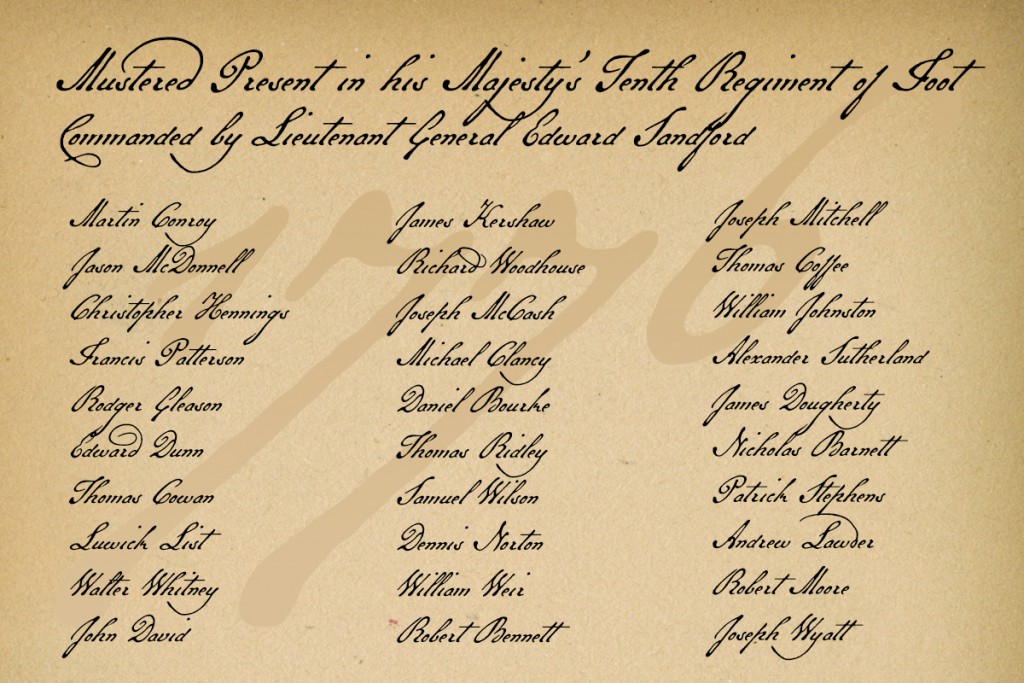 Mustered Present in his Majesty's Tenth Regiment of Foot
Commanded by Lieutenant General Edward Sandford
1776
Martin Conroy
Jason McDonnell
Christopher Hennings
Francis Patterson
Rodger Gleason
Edward Dunn
Thomas Cowan
Luwick List
Walter Whitney
John David
James Kershaw
Richard Woodhouse
Joseph McCash
Michael Clancy
Daniel Bourke
Thomas Ridley
Samuel Wilson
Dennis Norton
William Weir
Robert Bennett
Joseph Mitchell
Thomas Coffee
William Johnston
Alexander Sutherland
James Dougherty
Nicholas Barnett
Patrick Stephens
Andrew Lawder
Robert Moore
Joseph Wyatt